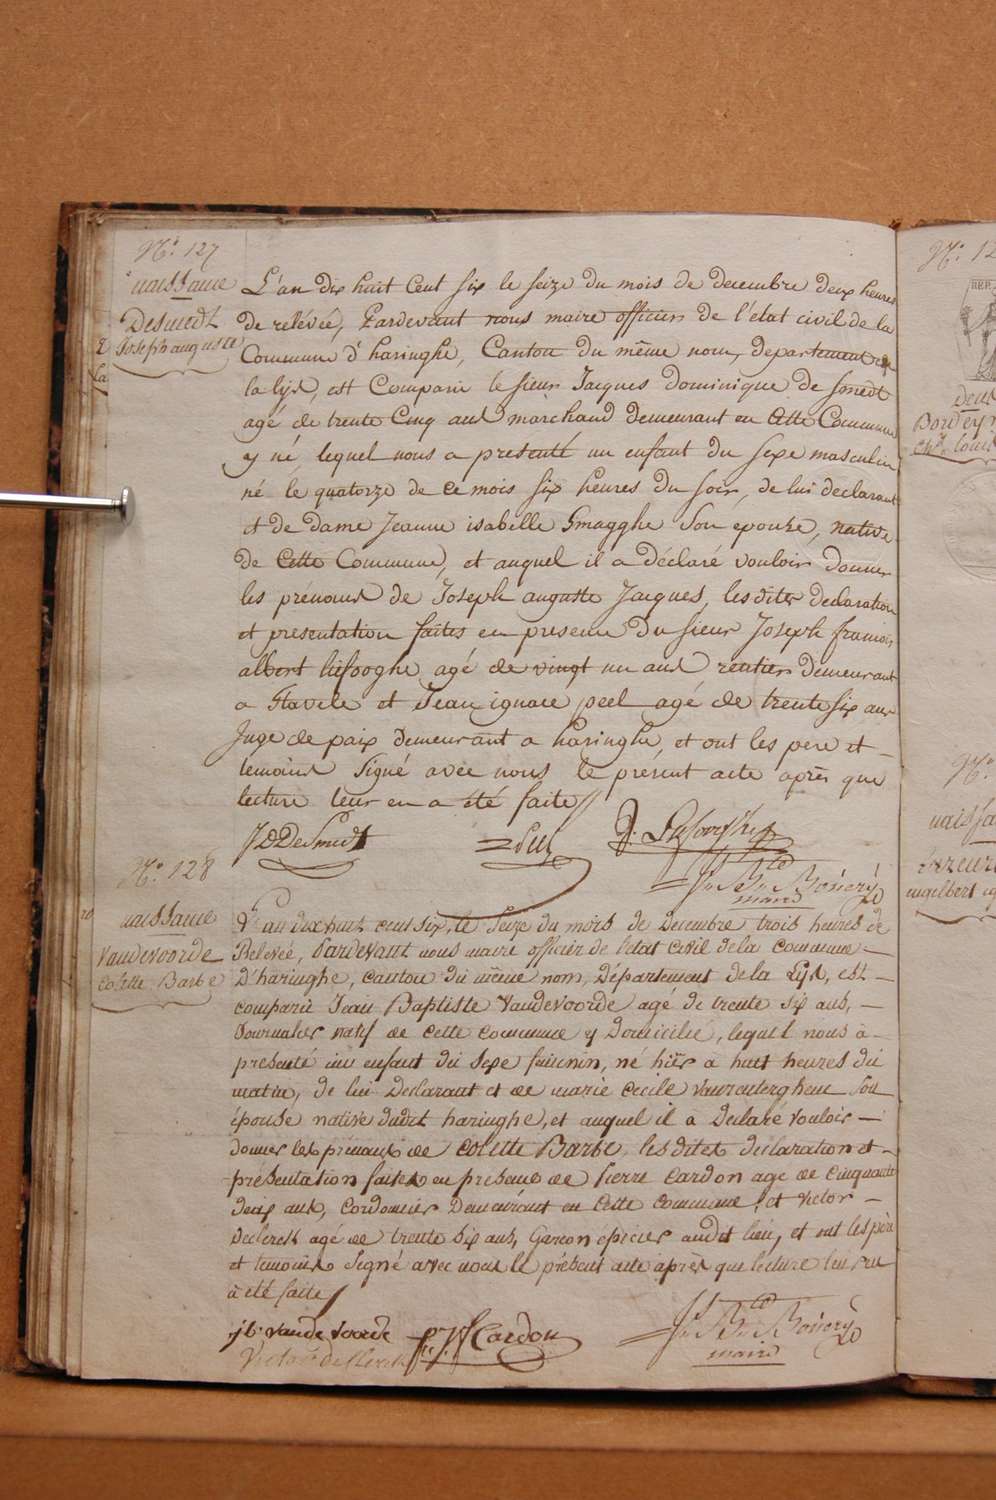 N.° 127
naissance
Desmedt
Joseph auguste
L'an dix huit Cent six le seize du mois de decembre deux heures
de relevée, Pardevant nous maire officier de l'etat civil de la
Commune d'haringhe, Canton du même nom, departement de
la lys, est Comparu le sieur Jacques dominique de smedt
agé de trente Cinq ans marchand demeurant en Cette Commune
y né lequel nous a presenté un enfant du sexe masculin
né le quatorze de ce mois six heures du soir, de lui declarant
et de dame Jeanne isabelle Gmagghe son epouse, native
de Cette Commune, et auquel il a déclaré vouloir donner
les prénoms de Joseph auguste Jacques, les dites declaration
et presentation faites en presence du sieur Joseph francois
albert liefooghe agé de vingt un ans rentier demeurant
a Stavele et Jean ignace peel agé de trente six ans
Juge de paix demeurant a haringhe, et ont les pere et
temoins Signé avec nous le présent acte après que
lecture leur en a été faite
J D DeSmedt Peel J. Liefooghe
Bonery
maire
N.° 128
naissance
Vandevoorde
Colette Barbe
L'an dix huit cent six, le seize du mois de decembre trois heures de
Relevée, Pardevant nous maire officier de l'etat civil de la commune
D'haringhe, canton du même nom, Département de la Lys, est
comparu Jean Baptiste Vandevoorde agé de trente six ans,
Journalier natif de cette commune y Domicilié, lequel nous à
presenté un enfant du sexe feminin, né hier à huit heures du
matin, de lui Declarant et de marie cecile son
épouse native dudit haringhe, et auquel il a Declaré vouloir
donner les prénoms de Colette Barbe, les dites declaration et
présentation faites en présence de Pierre Cardon agé de cinquante
deux ans, Cordonnier Demeurant en cette commune, et victor
Declerck agé de trente six ans, Garcon épicier audit lieu, et ont les père
et temoins Signé avec nous le présent acte après que lecture leur en
à été faite
j b: vande voorde Cardon Bonery
Victor de Clerck maire
N.° 12
REP
Bordey
Ch.s Louis
N.°
naissa
engelbert ig